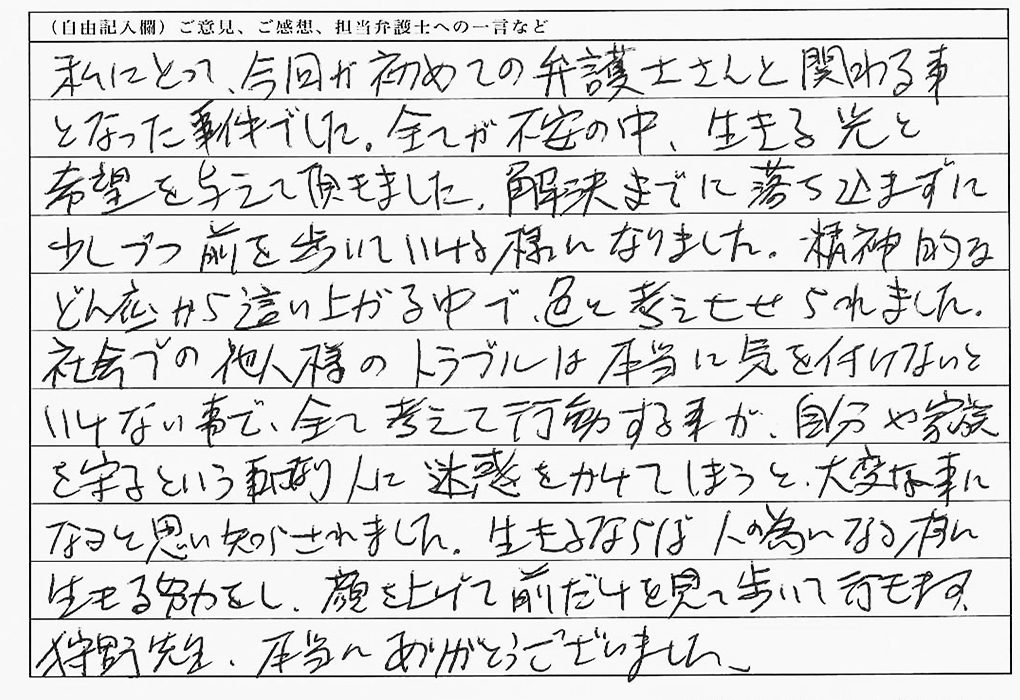 (自由記入欄) ご意見、ご感想、担当弁護士への一言など
私にとって、今回が初めての弁護士さんと関わる事
となった事件でした。全てが不安の中、生きる光と
希望を与えて頂きました。解決までに落ち込まずに
少しづつ前を歩いていける様になりました。精神的な
どん底から這い上がる中で、色々考えさせられました。
社会での他人様のトラブルは本当に気を付けないと
いけない事で、全て考えて行動する事が、自分や家族
を守るという事 人に迷惑をかけてしまうと、大変な事に
なると思い知らされました。生きるならば人の為になる様に
生きる努力をし、顔を上げて前だけを見て歩いて行きます。
狩野先生、本当にありがとうございました。